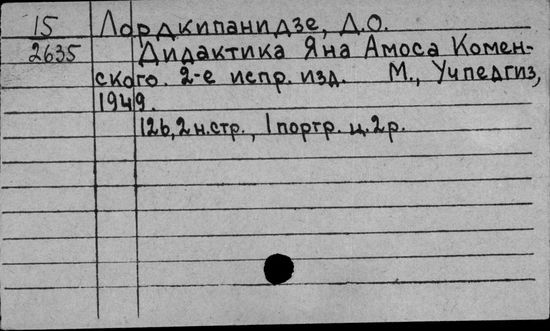 15 Лордкипанидзе, Д.О.
2635 Дидактика Яна Амоса Комен-
ского. 2-е испр. изд. М., Учпедгиз,
1949.
126,2 н.стр., 1 портр. ц.2р.